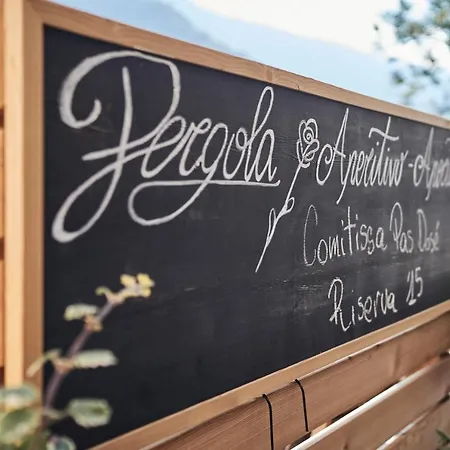 Pergola Aperitivo - Aperi
Comitissa Pas Dosé
Riserva 15